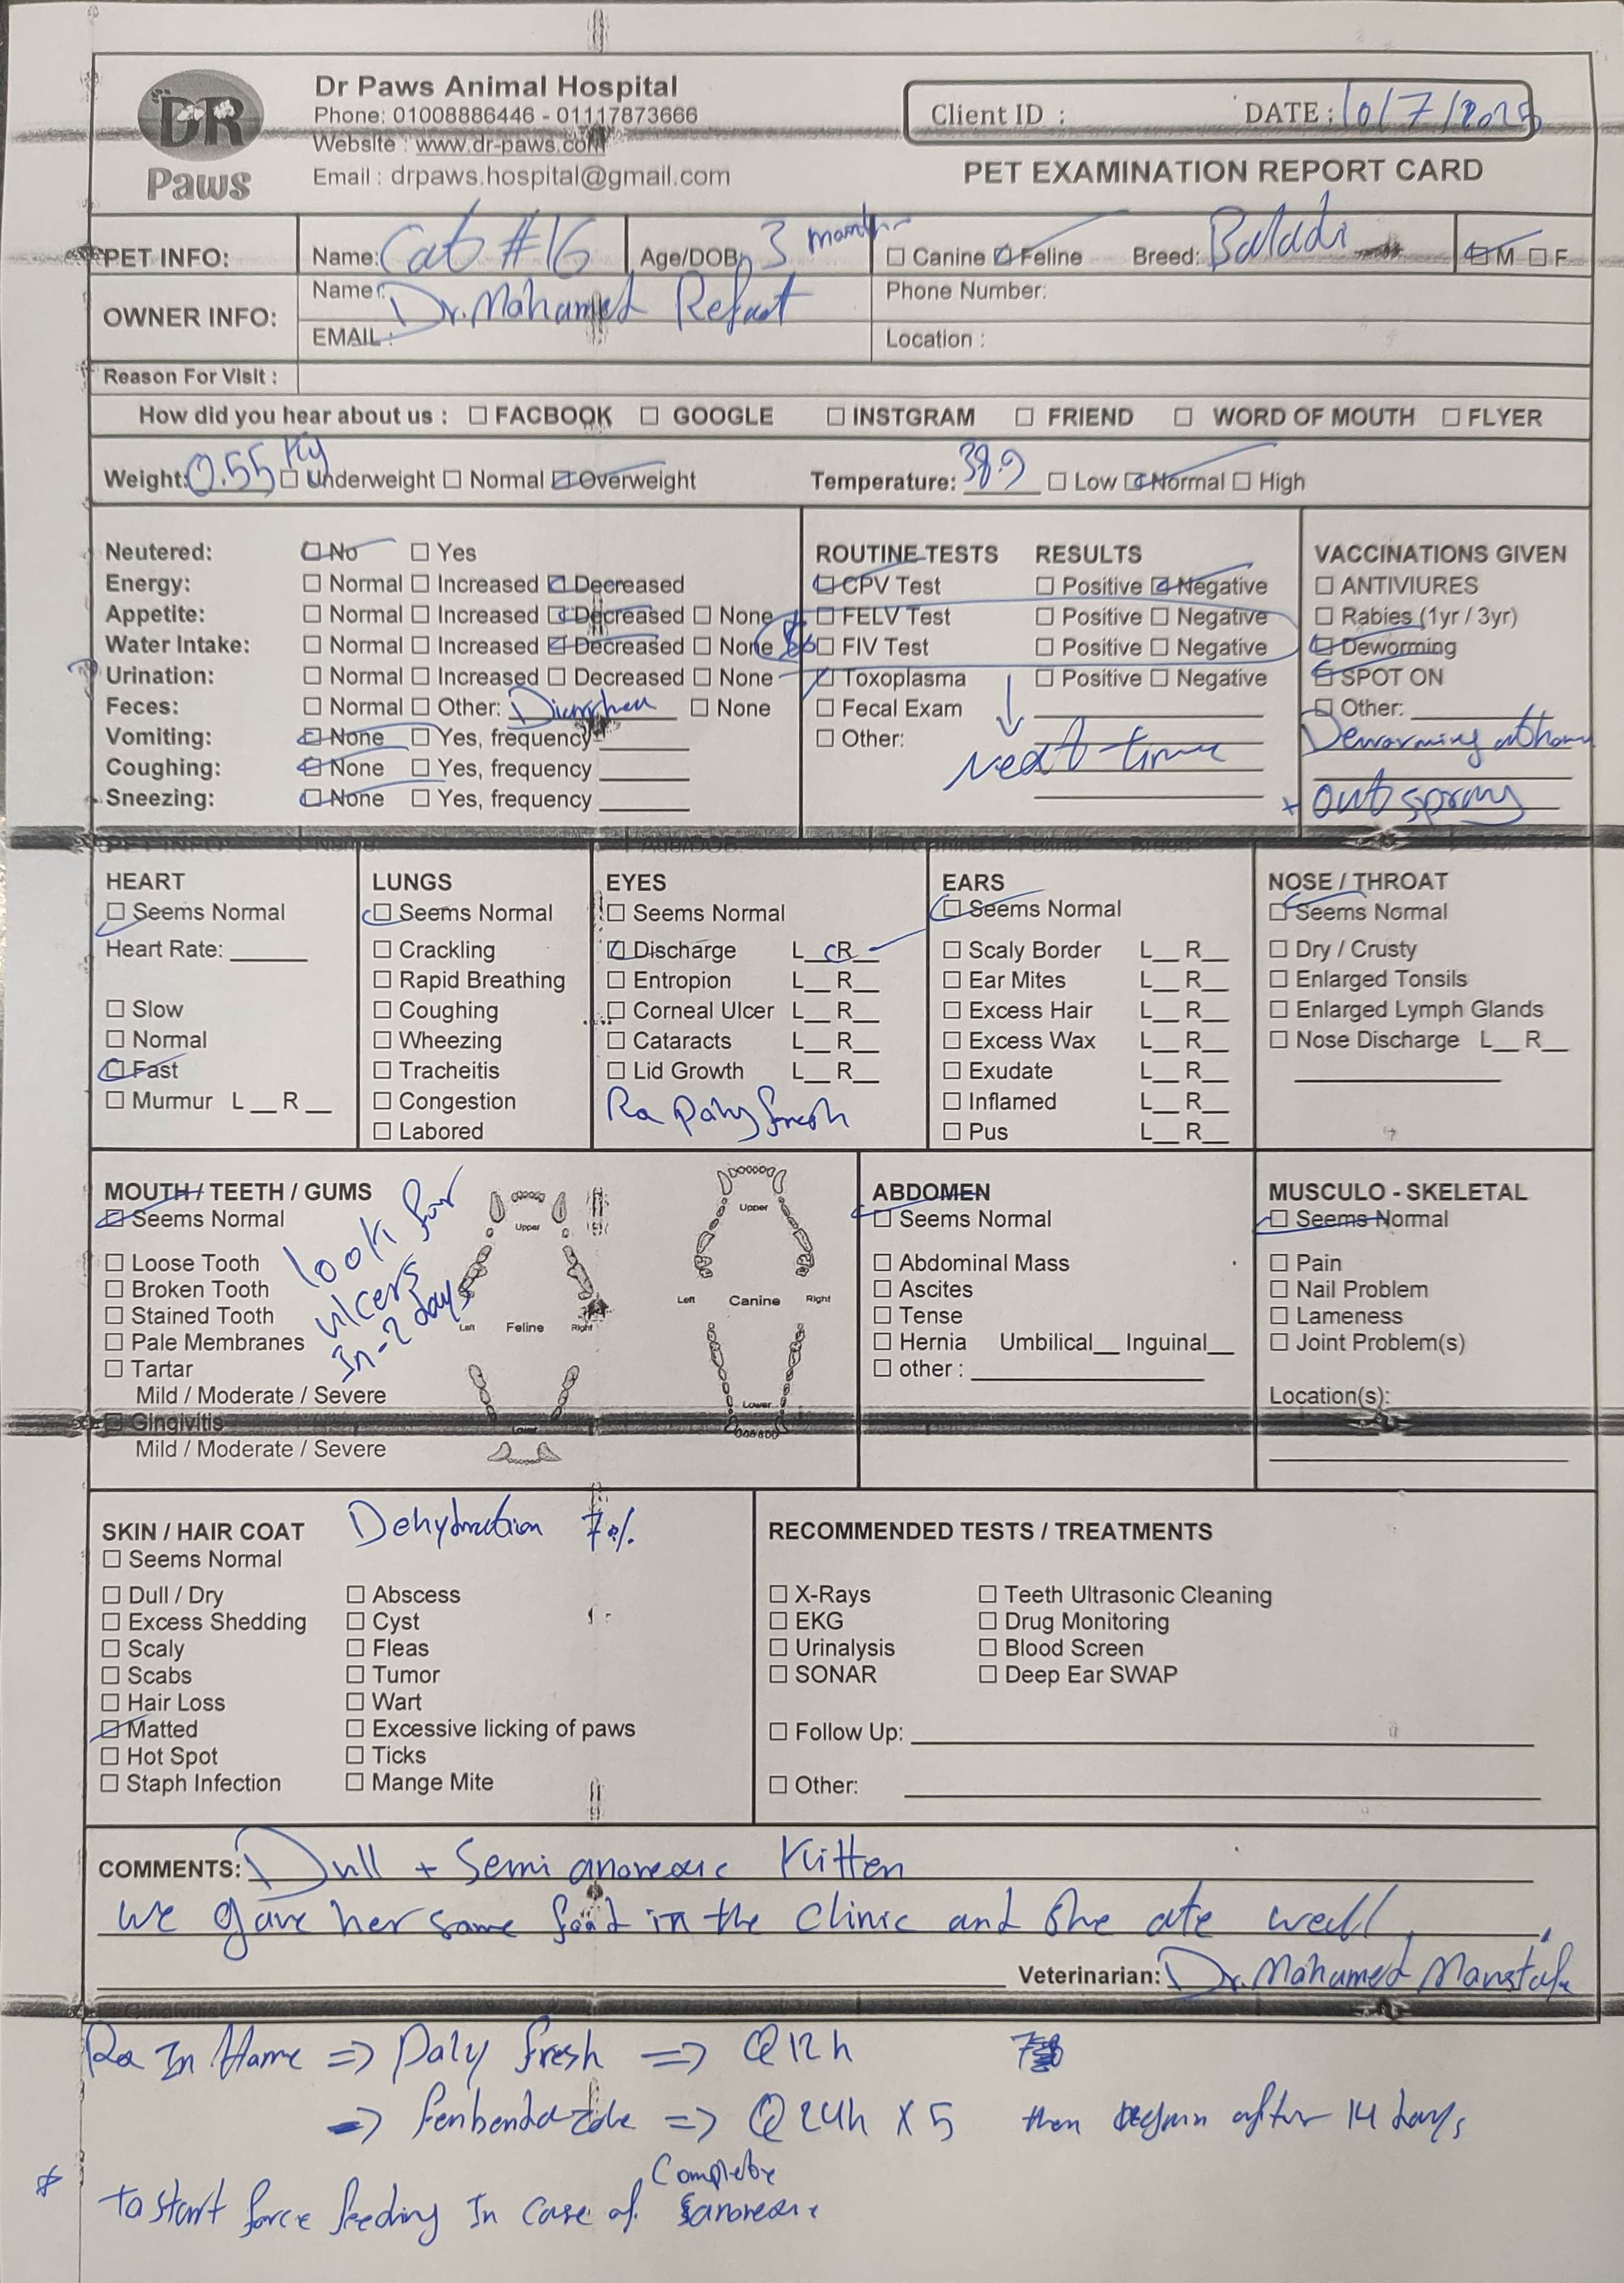 DR
Paws
Dr Paws Animal Hospital
Phone: 01008886446 - 01117873666
Website : www.dr-paws.com
Email : drpaws.hospital@gmail.com
Client ID : DATE : 10/7/2025
PET EXAMINATION REPORT CARD
PET INFO: Name: Cat #16 Age/DOB: 3 months ☐ Canine ☑ Feline Breed: Baladi ☑ M ☐ F
OWNER INFO: Name: Dr. Mohamed Refaat Phone Number:
EMAIL : Location :
Reason For Visit :
How did you hear about us : ☐ FACBOOK ☐ GOOGLE ☐ INSTGRAM ☐ FRIEND ☐ WORD OF MOUTH ☐ FLYER
Weight: 0.55 Kg ☐ Underweight ☐ Normal ☑ Overweight Temperature: 38.9 ☐ Low ☑ Normal ☐ High
Neutered: ☑ No ☐ Yes
Energy: ☐ Normal ☐ Increased ☑ Decreased
Appetite: ☐ Normal ☐ Increased ☑ Decreased ☐ None
Water Intake: ☐ Normal ☐ Increased ☑ Decreased ☐ None
? Urination: ☐ Normal ☐ Increased ☐ Decreased ☐ None
Feces: ☐ Normal ☐ Other: Diarrhea ☐ None
Vomiting: ☑ None ☐ Yes, frequency
Coughing: ☑ None ☐ Yes, frequency
Sneezing: ☑ None ☐ Yes, frequency
ROUTINE TESTS RESULTS
☑ CPV Test ☐ Positive ☑ Negative
☐ FELV Test ☐ Positive ☐ Negative
☐ FIV Test ☐ Positive ☐ Negative
☑ Toxoplasma ☐ Positive ☐ Negative
☐ Fecal Exam
☐ Other:
Next time
VACCINATIONS GIVEN
☐ ANTIVIURES
☐ Rabies (1yr / 3yr)
☑ Deworming
☑ SPOT ON
☐ Other:
Deworming at home
+ out spray
HEART
☑ Seems Normal
Heart Rate:
☐ Slow
☐ Normal
☑ Fast
☐ Murmur L R
LUNGS
☑ Seems Normal
☐ Crackling
☐ Rapid Breathing
☐ Coughing
☐ Wheezing
☐ Tracheitis
☐ Congestion
☐ Labored
EYES
☐ Seems Normal
☑ Discharge L R
☐ Entropion L R
☐ Corneal Ulcer L R
☐ Cataracts L R
☐ Lid Growth L R
Ra Paly fresh
EARS
☑ Seems Normal
☐ Scaly Border L R
☐ Ear Mites L R
☐ Excess Hair L R
☐ Excess Wax L R
☐ Exudate L R
☐ Inflamed L R
☐ Pus L R
NOSE / THROAT
☑ Seems Normal
☐ Dry / Crusty
☐ Enlarged Tonsils
☐ Enlarged Lymph Glands
☐ Nose Discharge L R
MOUTH / TEETH / GUMS
☑ Seems Normal
☐ Loose Tooth
☐ Broken Tooth
☐ Stained Tooth
☐ Pale Membranes
☐ Tartar
Mild / Moderate / Severe
☐ Gingivitis
Mild / Moderate / Severe
look for
ulcers
In-2 days
Upper
Left Feline Right
Lower
Upper
Left Canine Right
Lower
ABDOMEN
☑ Seems Normal
☐ Abdominal Mass
☐ Ascites
☐ Tense
☐ Hernia Umbilical Inguinal
☐ other :
MUSCULO - SKELETAL
☑ Seems Normal
☐ Pain
☐ Nail Problem
☐ Lameness
☐ Joint Problem(s)
Location(s):
SKIN / HAIR COAT Dehydration 7%
☐ Seems Normal
☐ Dull / Dry ☐ Abscess
☐ Excess Shedding ☐ Cyst
☐ Scaly ☐ Fleas
☐ Scabs ☐ Tumor
☐ Hair Loss ☐ Wart
☑ Matted ☐ Excessive licking of paws
☐ Hot Spot ☐ Ticks
☐ Staph Infection ☐ Mange Mite
RECOMMENDED TESTS / TREATMENTS
☐ X-Rays ☐ Teeth Ultrasonic Cleaning
☐ EKG ☐ Drug Monitoring
☐ Urinalysis ☐ Blood Screen
☐ SONAR ☐ Deep Ear SWAP
☐ Follow Up:
☐ Other:
COMMENTS: Dull + Semi anorexic Kitten
We gave her some food in the clinic and she ate well.
Veterinarian: Dr. Mohamed Moustafa
Ra In Home => Paly fresh => Q12h
=> fenbendazole => Q24h X 5 then again after 14 days
* to start force feeding In Case of Complete anorexic